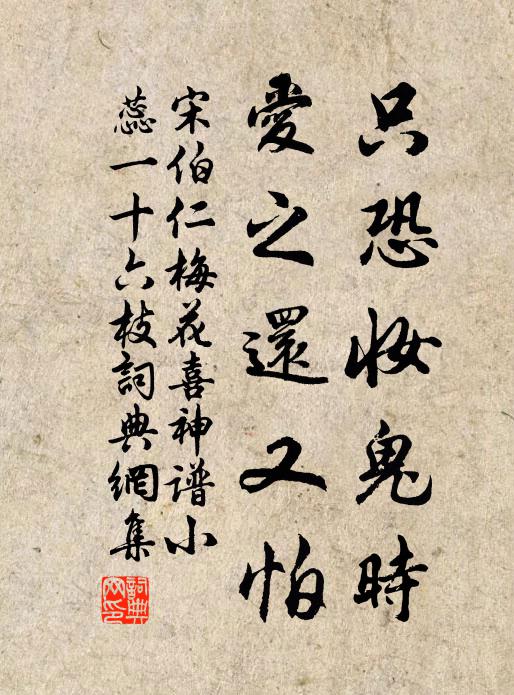 只恐妝鬼時
愛之還又怕
宋伯仁梅花喜神譜小
蕊一十六枝詞典網集
詞典
网印